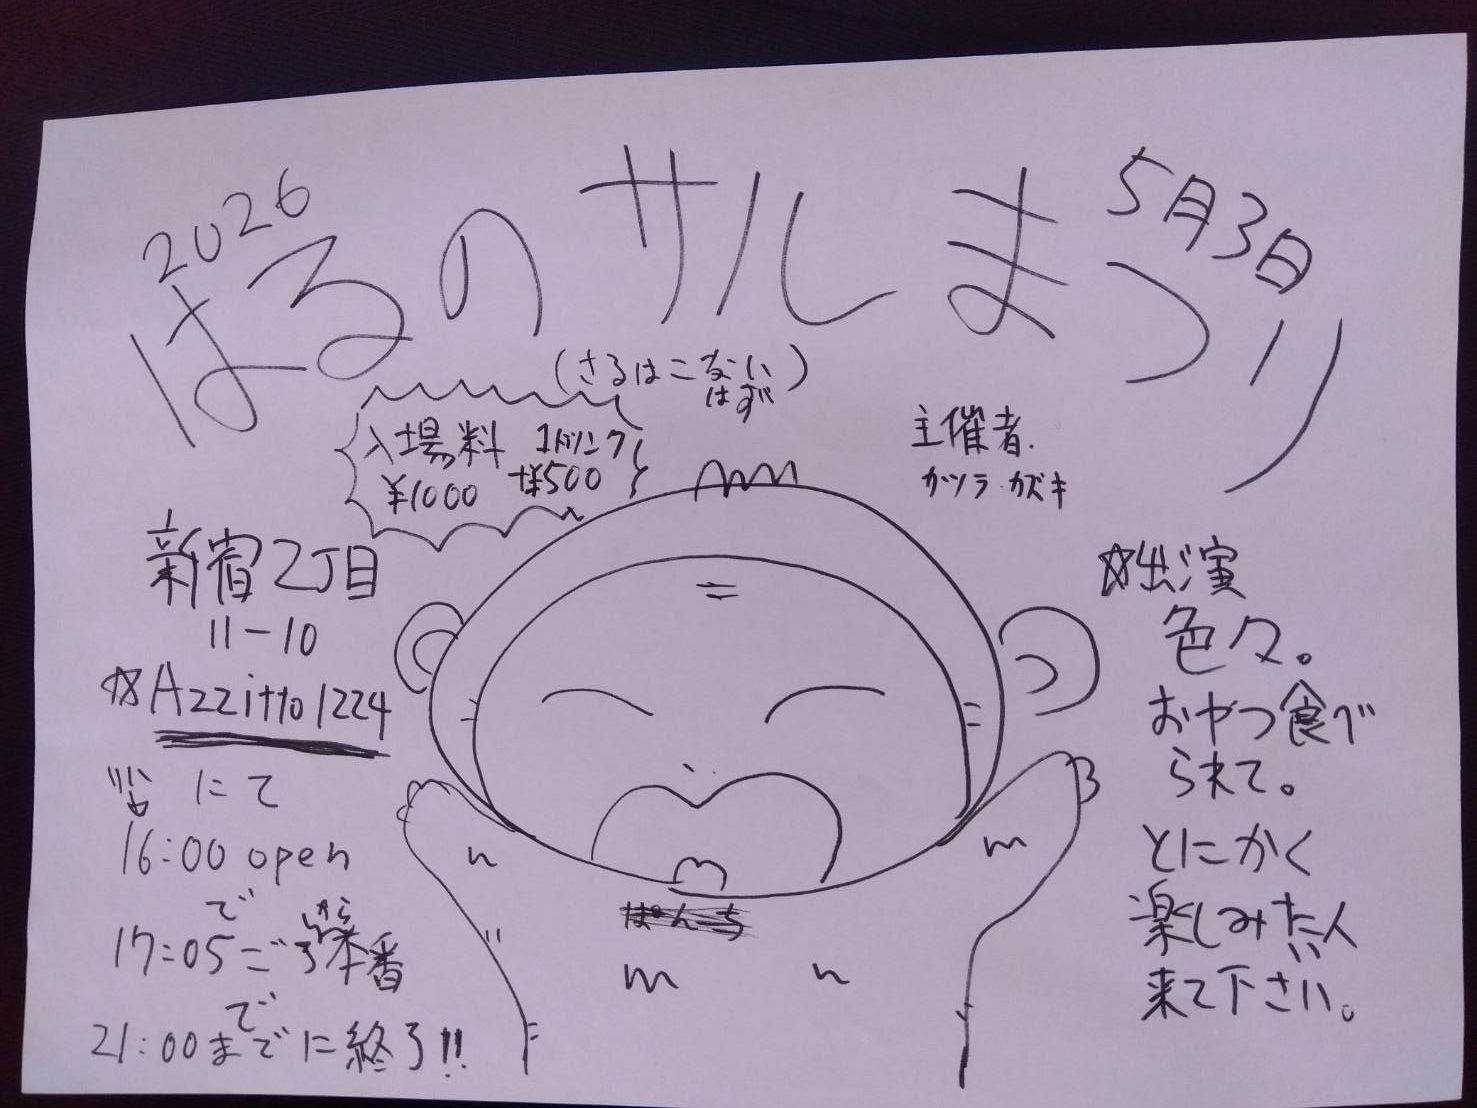 2026
はるのサルまつり
5月3日
(さるはこない
はず)
入場料 1ドリンク
¥1000 +¥500
主催者.
カツラ カズキ
新宿2丁目
11-10
☆Azzitto1224
にて
16:00 open
で
17:05ごろから本番
で
21:00までに終了!!
☆出演
色々。
おやつ食べ
られて。
とにかく
楽しみたい人
来て下さい。
ぱんち